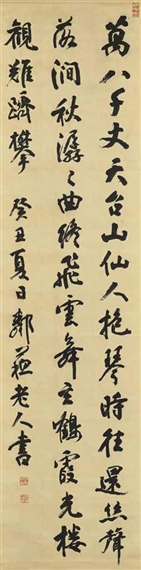 萬八千丈天台山仙人抱琴時往還絲聲
落澗秋潺〻曲終飛雲舞玄鶴霞光楼
觀難躋攀 癸丑夏日鄰蘇老人書